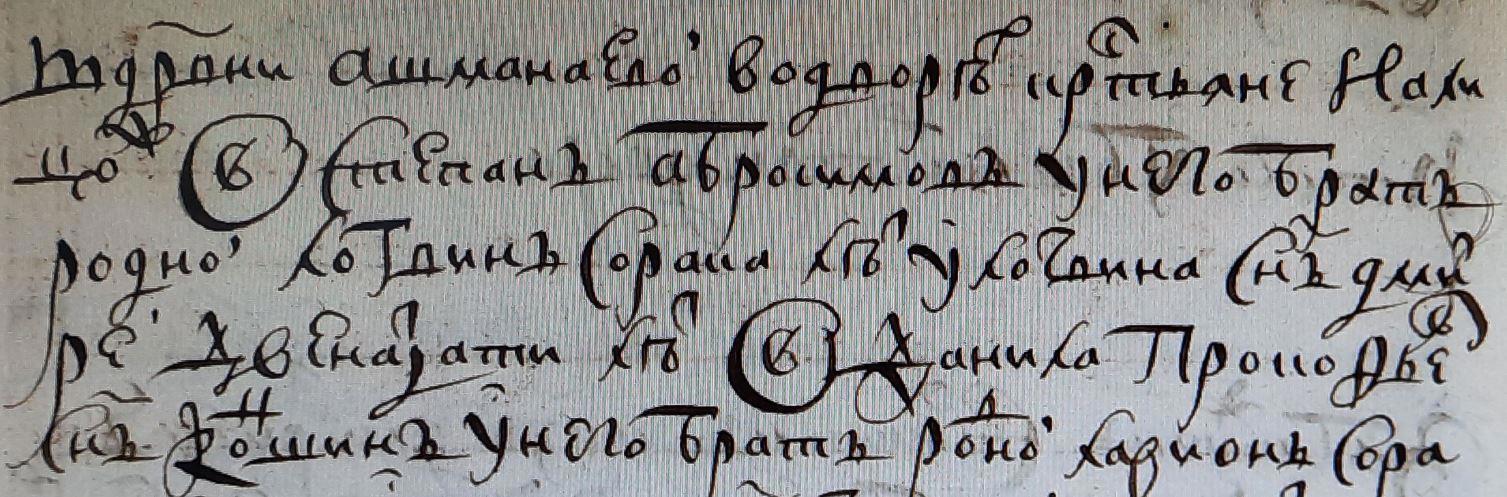 дрвни Ашманаево' во дворѣх крстьяне нали
цо в Степанъ Абросимовъ у него братъ
родно' Логвинъ сорака лѣт у Логвина снъ Дмит
ре' двенацати лѣт в Данила Прокофьев
снъ у него братъ родно' Ларионъ сора